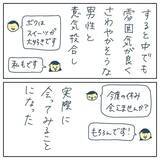 すると中でも
雰囲気が良く
さわやかそうな
男性と
意気投合し
ボクは
スイーツが
大好きです
私もです!
今度の休み
会えませんか?
もちろんです!
実際に
会ってみることに
なった